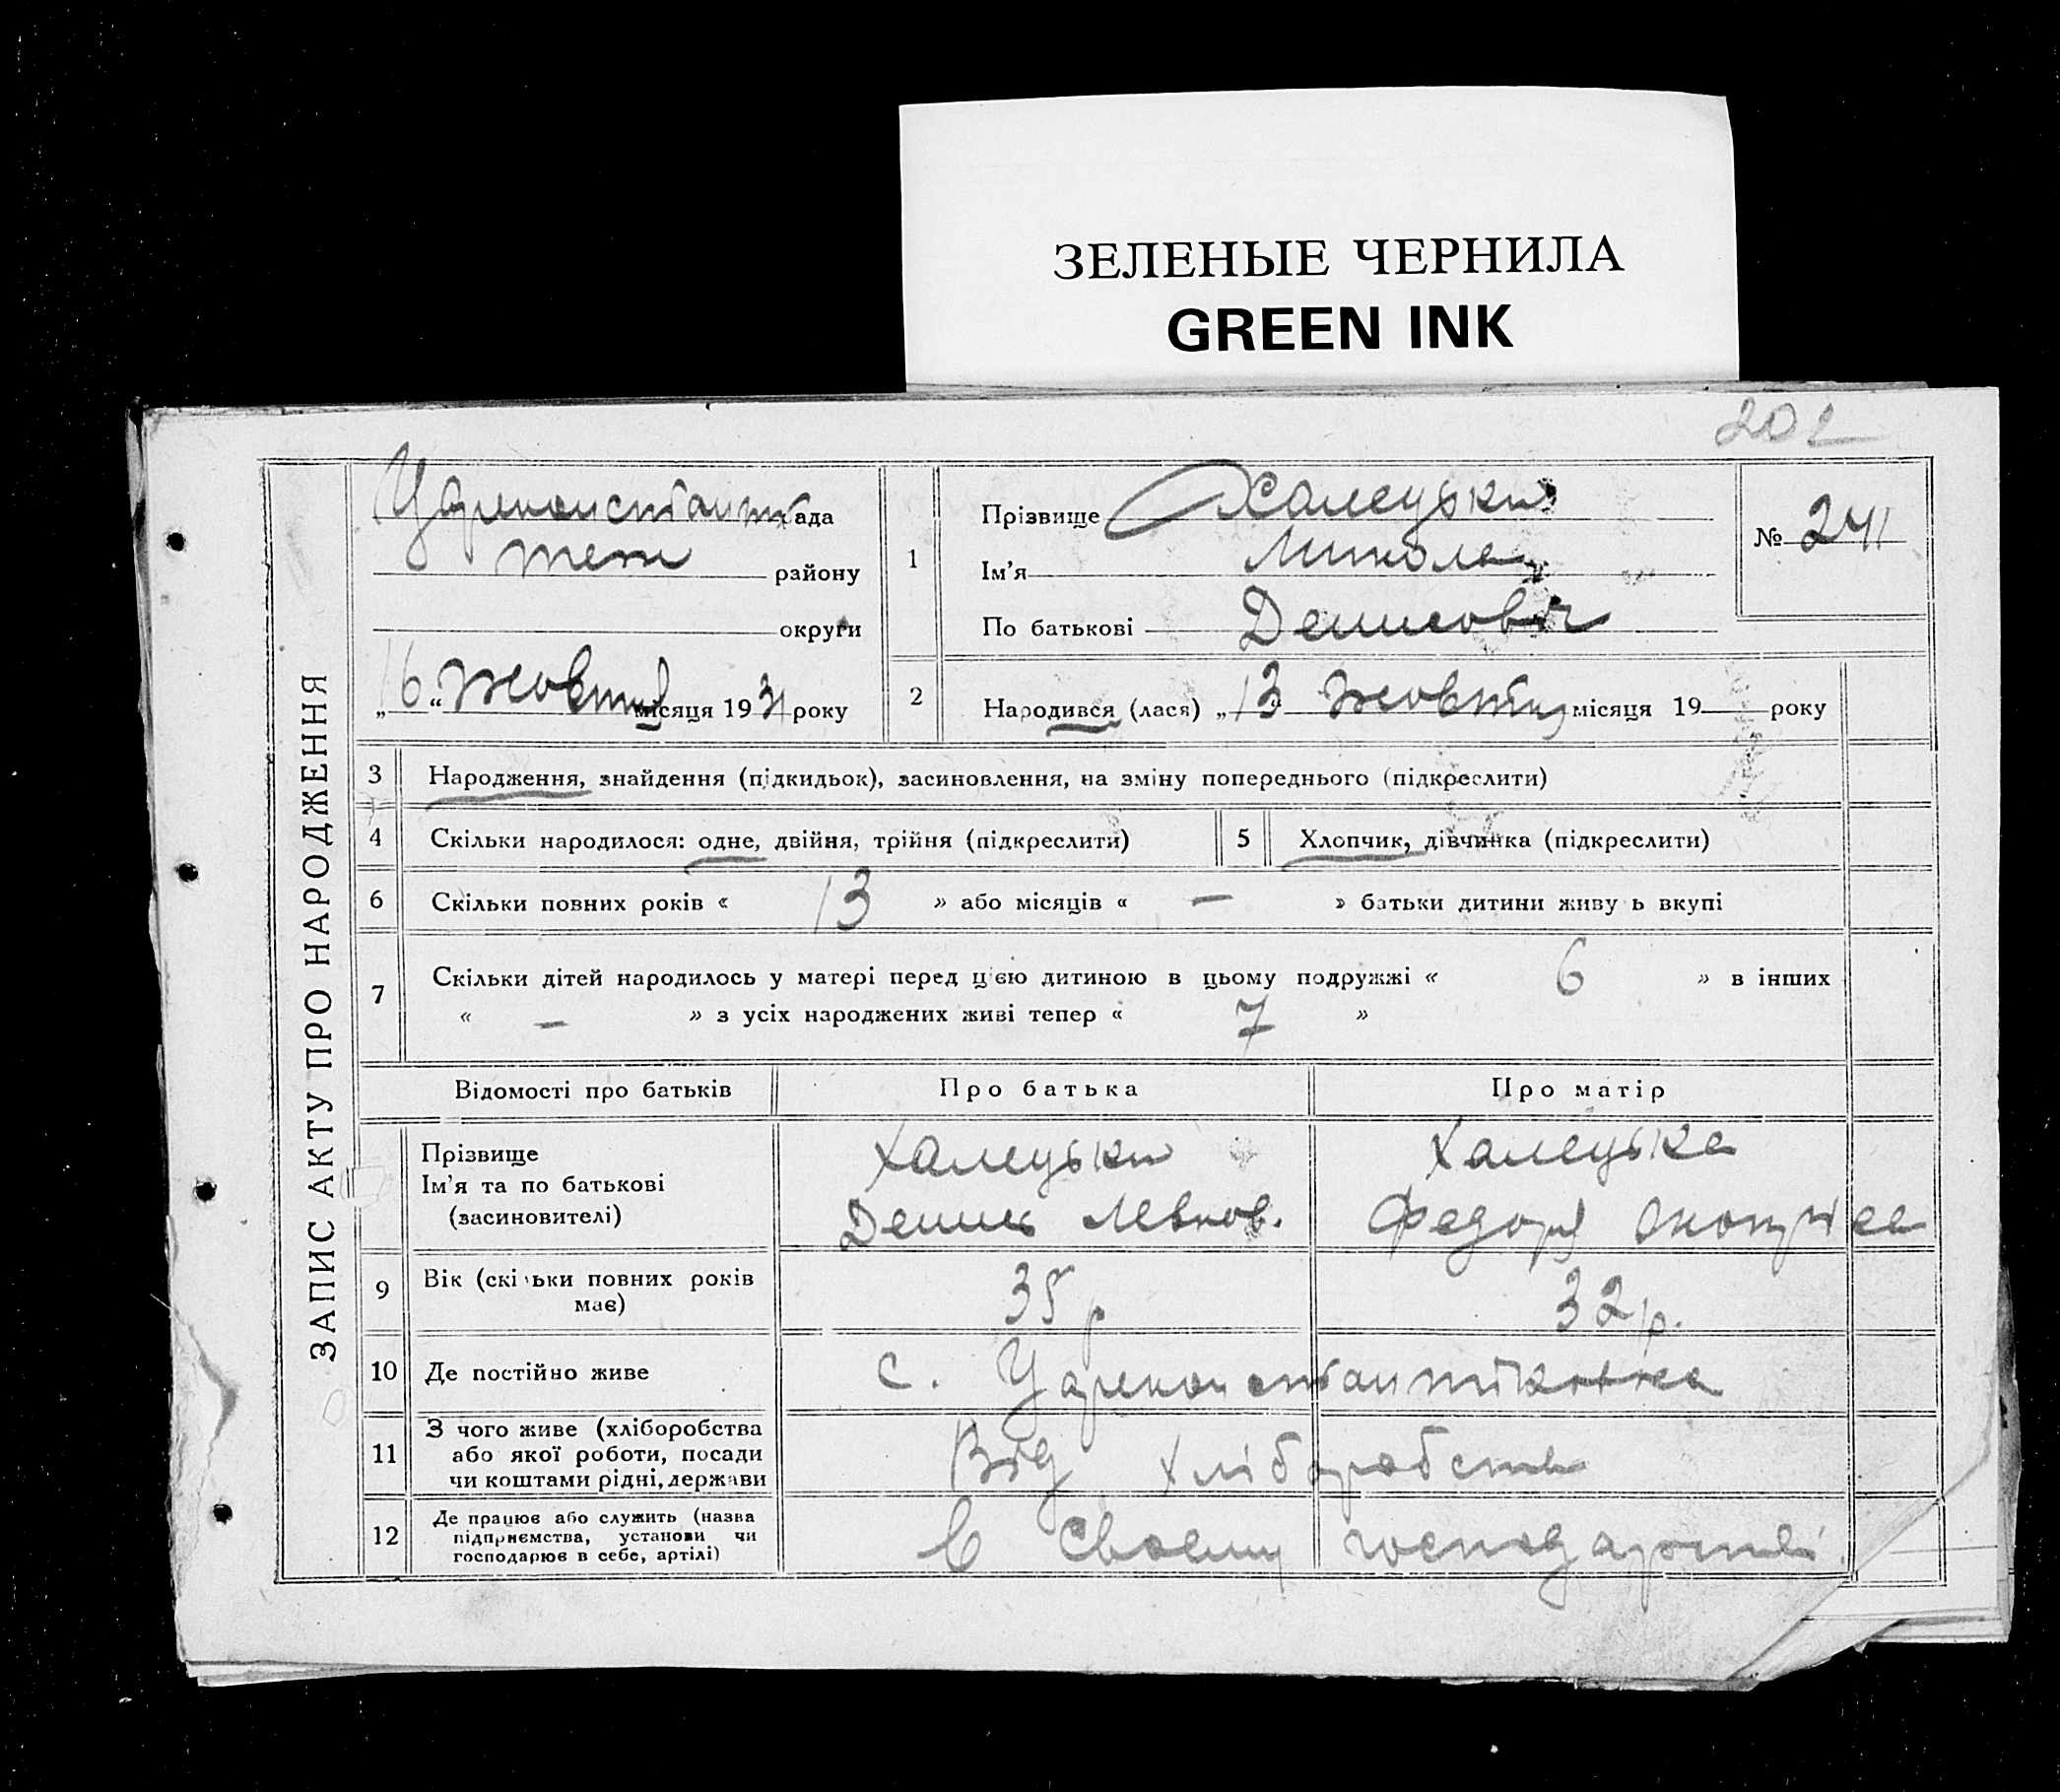 ЗЕЛЕНЫЕ ЧЕРНИЛА
GREEN INK
202
ЗАПИС АКТУ ПРО НАРОДЖЕННЯ
Цареконстант рада
теж району
округи
„16“ Жовтня місяця 1931 року
1
Прізвище Халецьки
Ім'я Микола
По батькові Денисович
№ 241
2
Народився (лася) „13 Жовтня місяця 19 року
3 Народження, знайдення (підкидьок), засиновлення, на зміну попереднього (підкреслити)
4 Скільки народилося: одне, двійня, трійня (підкреслити) 5 Хлопчик, дівчинка (підкреслити)
6 Скільки повних років « 13 » або місяців « — » батьки дитини живу ь вкупі
7 Скільки дітей народилось у матері перед цією дитиною в цьому подружжі « 6 » в інших
« — » з усіх народжених живі тепер « 7 »
Відомості про батьків Про батька Про матір
Прізвище Халецьки Халецька
Ім'я та по батькові
(засиновителі) Денис Левков. Федора
9 Вік (скільки повних років
має) 35 р 32 р.
10 Де постійно живе с. Цареконстантинівка
11 З чого живе (хліборобства
або якої роботи, посади
чи коштами рідні, держави Від хліборобства
12 Де працює або служить (назва
підприємства, установи чи
господарює в себе, артілі) В своєму господарстві